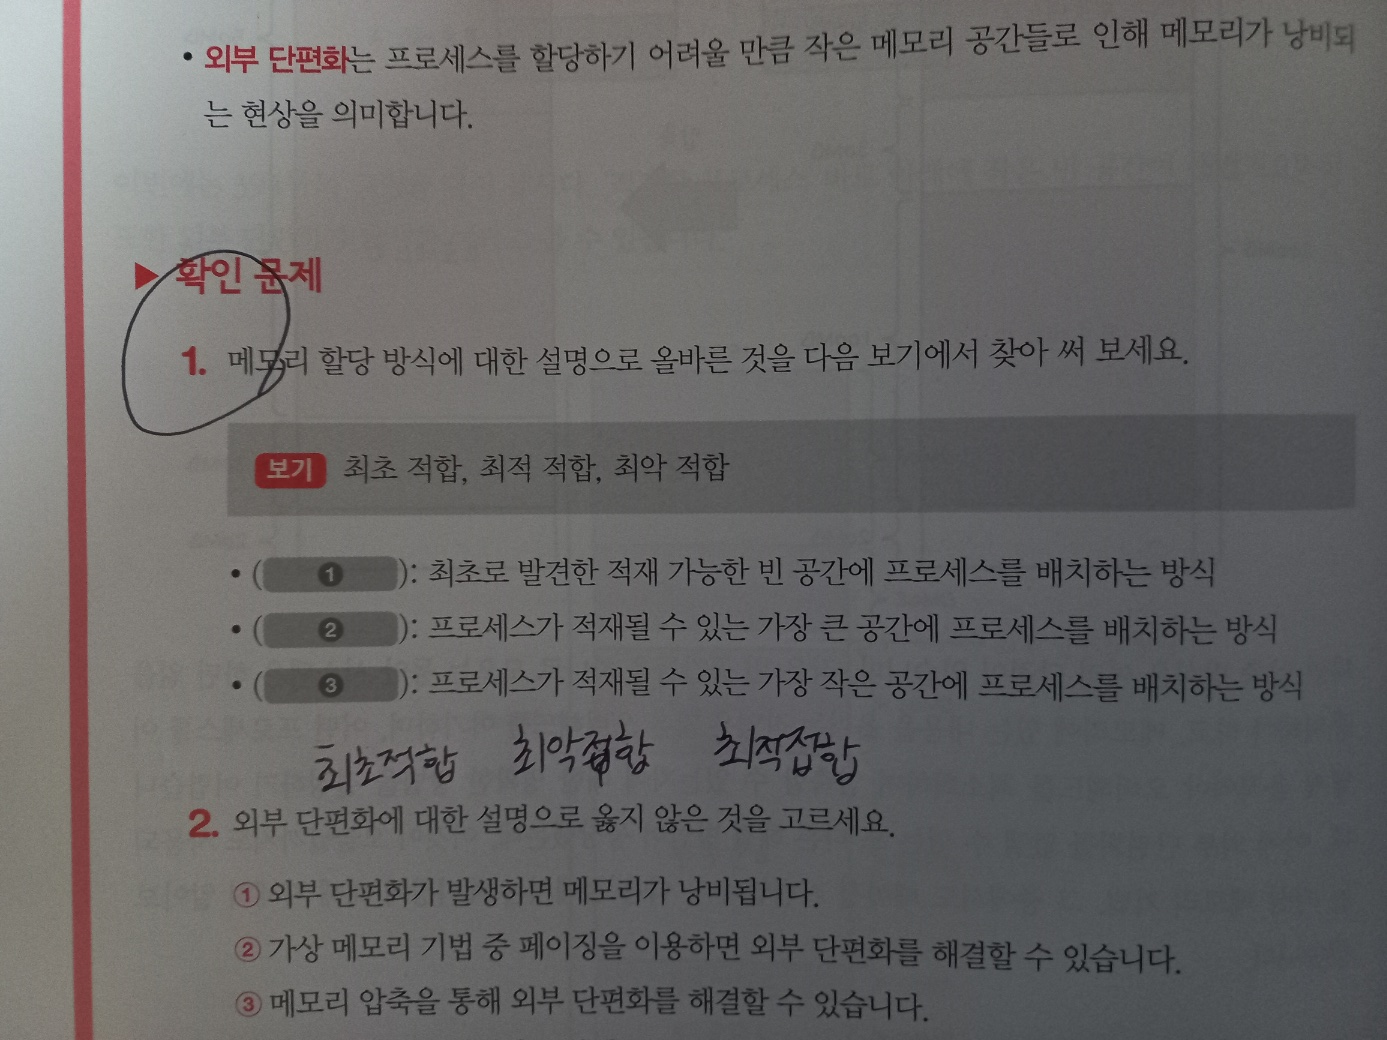 • 외부 단편화는 프로세스를 할당하기 어려울 만큼 작은 메모리 공간들로 인해 메모리가 낭비되
는 현상을 의미합니다.
▶ 확인 문제
1. 메모리 할당 방식에 대한 설명으로 올바른 것을 다음 보기에서 찾아 써 보세요.
보기 최초 적합, 최적 적합, 최악 적합
• ( ❶ ): 최초로 발견한 적재 가능한 빈 공간에 프로세스를 배치하는 방식
• ( ❷ ): 프로세스가 적재될 수 있는 가장 큰 공간에 프로세스를 배치하는 방식
• ( ❸ ): 프로세스가 적재될 수 있는 가장 작은 공간에 프로세스를 배치하는 방식
최초적합 최악접합 최적접합
2. 외부 단편화에 대한 설명으로 옳지 않은 것을 고르세요.
① 외부 단편화가 발생하면 메모리가 낭비됩니다.
② 가상 메모리 기법 중 페이징을 이용하면 외부 단편화를 해결할 수 있습니다.
③ 메모리 압축을 통해 외부 단편화를 해결할 수 있습니다.